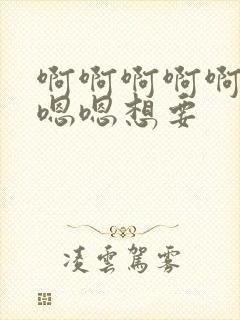 啊啊啊啊啊
嗯嗯想要
凌雲駕雾